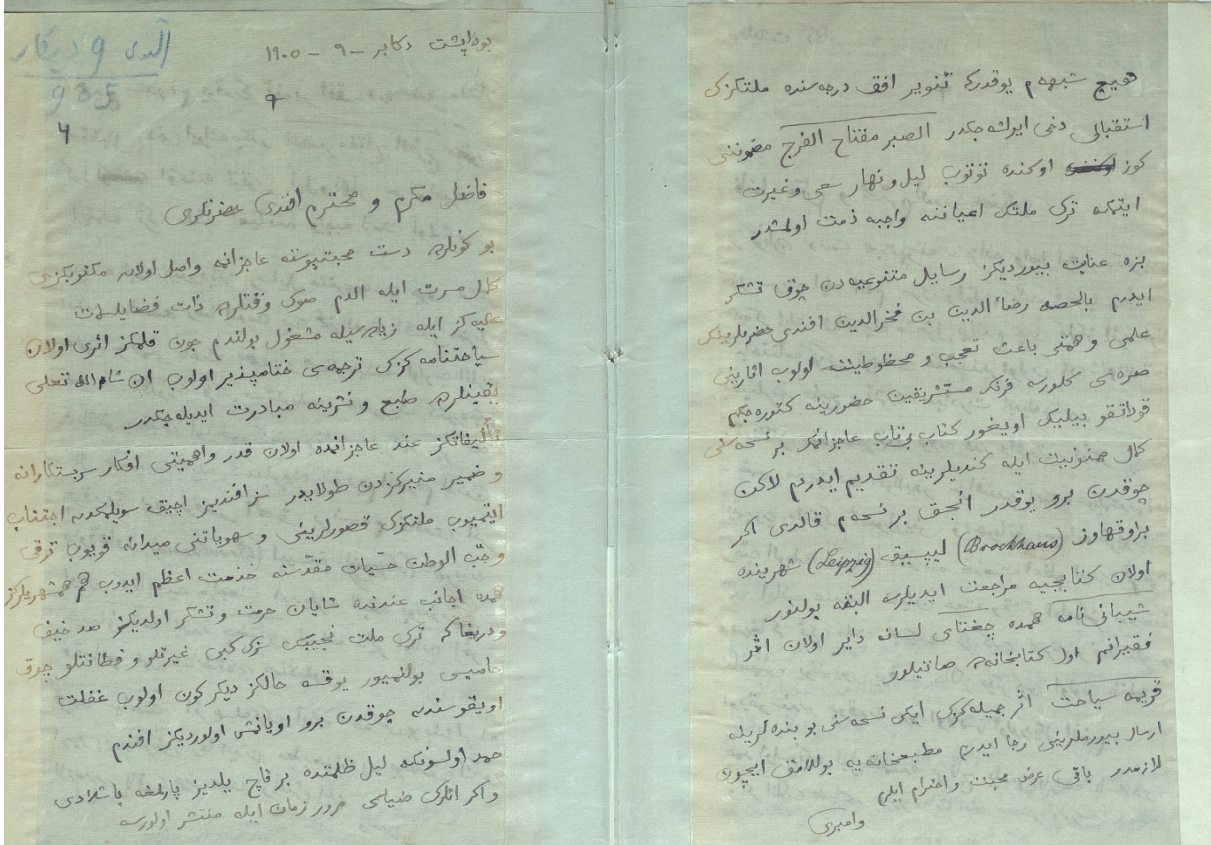 الدی 9 دیکابر
905
بوداپشت دکابر - ٩ - ١٩٠٥
٩
4
فاضل مکرم و محترم افندی حضرتلری
بو کونلرده دست محبتپیوسته عاجزانمه واصل اولان مکتوبکزی
کمال مسرت ایله الدم صوک وقتلرده ذات فضایلسمات
عالیه کز ایله زیاده سیله مشغول بولندم چون قلمکز اثری اولان
سیاحتنامه کزک ترجمه سی ختامپذیر اولوب ان شاء الله تعلی
یقینلرده طبع و نشرینه مبادرت ایدیله جکدر
تألیفاتکز عند عاجزانمده اولان قدر و اهمیتی افکار سربستکارانه
و ضمیر منیرکزدن طولاییدر سز افندیز اچیق سویلمکدن اجتناب
ایتمیوب ملتکزک قصورلرینی و سهویاتنی میدانه قویوب ترقی
و حب الوطن حسیات مقدسنه خدمت اعظم ایدوب هم همشهریلرکز
همده اجانب عندنده شایان حرمت و تشکر اولدیکز صد حیف
و دریغا که ترک ملت نجیبه‌سنک سزک کبی غیرتلو و فطانتلو چوق
حامیسی بوللمیور یوقسه حالکز دیکر کون اولوب غفلت
اویقوسندن چوقدن برو اویانمش اولوردیکز افندم
حمد اولسونکه لیل ظلمتده بر قاچ یلدیز پارلمغه باشلادی
و اکر انلرک ضیاسی مرور زمان ایله منتشر اولورسه
هیچ شبهه م یوقدرکه تنویر افق درجه سنده ملتکزک
استقبالی دخی ایرلشه جکدر الصبر مفتاح الفرج مضموننی
کوز اوکنده توتوب لیل و نهار سعی و غیرت
ایتمک ترک ملتک اعیاننه واجبه ذمت اولمشدر
بزه عنایت بیوردیکز رسایل متنوعه دن چوق تشکر
ایدرم بالحصه رضاء الدین بن فخرالدین افندی حضرتلرینک
علمی و همتی باعث تعجب و محظوظیت اولوب اثارینی
صره سی کلورسه فرنک مستشریقین حضورینه کتوره جکم
قوداتقو بیلیک اویغور کتاب بی‌تاب عاجزانمک بر نسخه سنی
کمال ممنونیت ایله کندیلرینه تقدیم ایدرم لاکن
چوقدن برو یوقدر انجق بر نسخه م قالدی اکر
براوقهاوز (Brockhaus) لیپسیق (Leipzig) شهرینده
اولان کتابجییه مراجعت ایدیلرسه البته بولنور
شیبانی نامه همده چغتای لسانه دایر اولان اثر
فقیرانم اول کتابخانه ده صاتیلور
قریمه سیاحت اثر جمیله کزک ایکی نسخه سنی بو بنده لرینه
ارسال بیورملرینی رجا ایدرم مطبعخانه یه یوللامق ایچون
لازمدر باقی عرض محبت و احترام ایلرم
وامبری